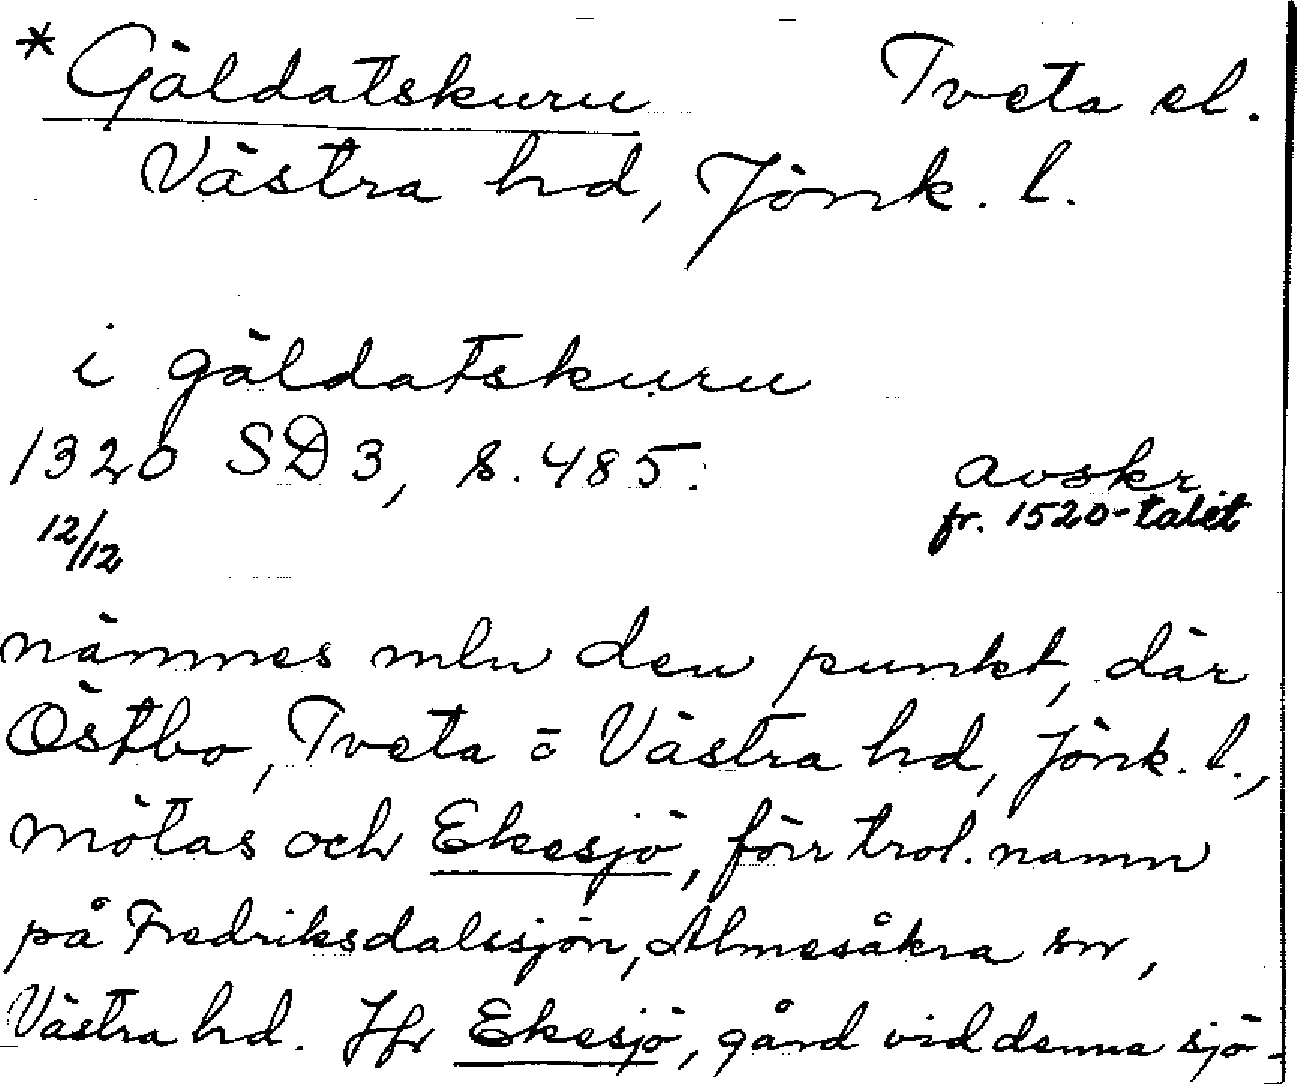 *Gäldatskuru Tveta el.
Västra hd, Jönk. l.
i gäldatskuru
1320 SD 3, s. 485. avskr.
12/12 fr. 1520-talet
nämnes mln den punkt, där
Östbo, Tveta o Västra hd, Jönk. l.,
mötas och Ekesjö, förr trol. namn
på Fredriksdalssjön, Almesåkra sn,
Västra hd. Jfr Ekesjö, gård vid denna sjö.